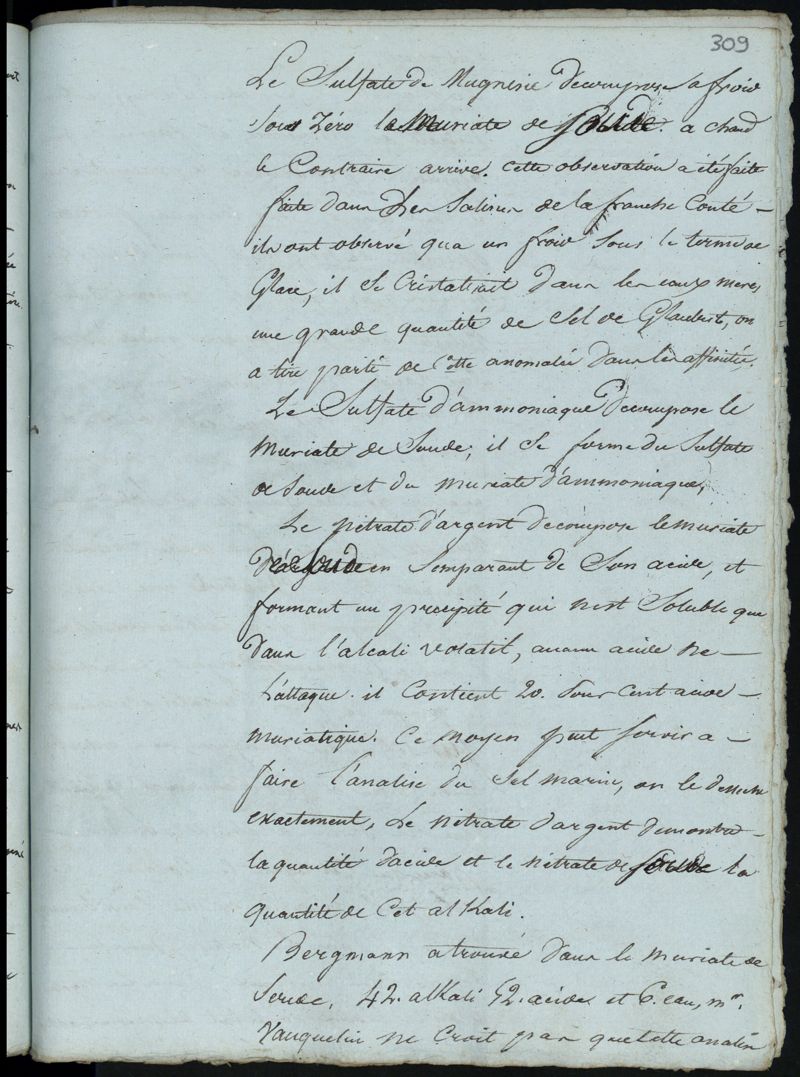 309
Le Sulfate de Magnesie decompose a froid
sous Zéro le Muriate de soude. a chaud
le Contraire arrive. cette observation a été faite
faite dans les Salines de la franche Conté –
ils ont observé qua un froid sous le terme de
Glace, il se Cristalisait dans les eaux meres
une grande quantité de Sel de Glaubert, on
a tiré parti de cette anomalie dans les affinités.
Le Sulfate d'ammoniaque decompose le
Muriate de Soude, il se forme du Sulfate
de Soude et du muriate d'ammoniaque,
Le nitrate d'argent decompose le muriate
de soude en semparant de Son acide, et
formant un precipité qui nest Soluble que
dans l'alcali volatil, aucun acide ne –
l'attaque. il Contient 20. pour cent acide –
muriatique. Ce moyen peut servir a –
faire l'analise du Sel marin, on le desseche
exactement, Le nitrate d'argent demontre –
la quantité d'acide et le nitrate de soude la
quantité de Cet alKali.
Bergmann a trouvé dans le muriate de
Soude, 42. alKali 52. acide et 6. eau, mr.
Vauquelin ne Croit pas que cette